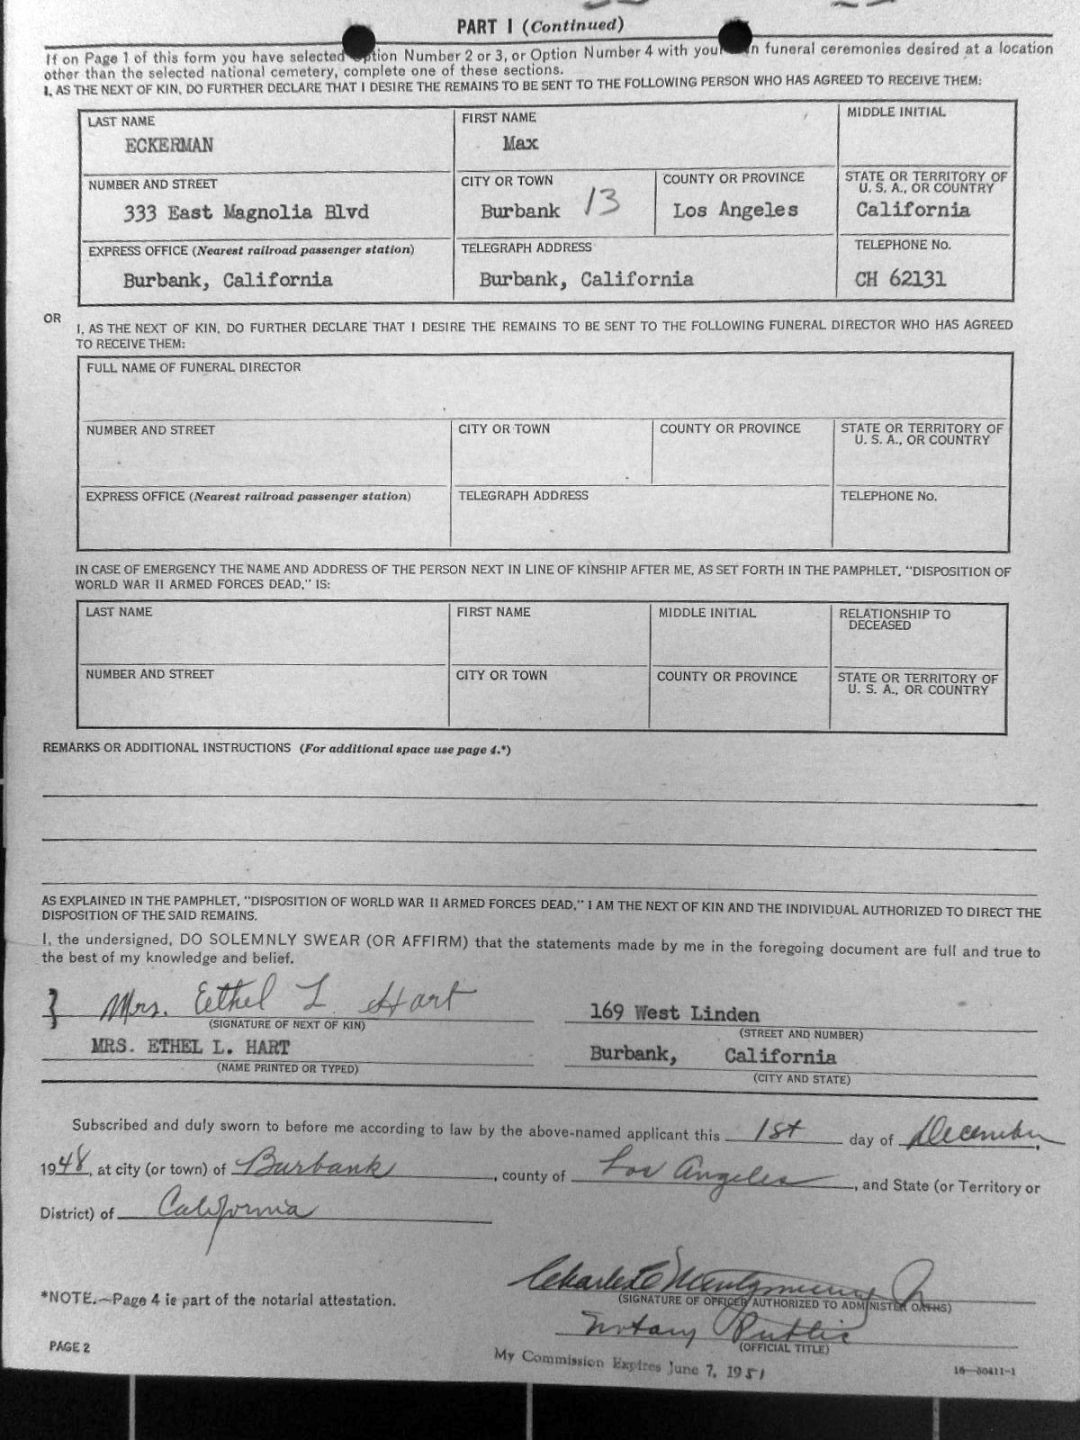 PART I (Continued)
If on Page 1 of this form you have selected Option Number 2 or 3, or Option Number 4 with your own funeral ceremonies desired at a location
other than the selected national cemetery, complete one of these sections.
I, AS THE NEXT OF KIN, DO FURTHER DECLARE THAT I DESIRE THE REMAINS TO BE SENT TO THE FOLLOWING PERSON WHO HAS AGREED TO RECEIVE THEM:
LAST NAME FIRST NAME MIDDLE INITIAL
ECKERMAN Max
NUMBER AND STREET CITY OR TOWN COUNTY OR PROVINCE STATE OR TERRITORY OF
U. S. A., OR COUNTRY
333 East Magnolia Blvd Burbank 13 Los Angeles California
EXPRESS OFFICE (Nearest railroad passenger station) TELEGRAPH ADDRESS TELEPHONE No.
Burbank, California Burbank, California CH 62131
OR I, AS THE NEXT OF KIN, DO FURTHER DECLARE THAT I DESIRE THE REMAINS TO BE SENT TO THE FOLLOWING FUNERAL DIRECTOR WHO HAS AGREED
TO RECEIVE THEM:
FULL NAME OF FUNERAL DIRECTOR
NUMBER AND STREET CITY OR TOWN COUNTY OR PROVINCE STATE OR TERRITORY OF
U. S. A., OR COUNTRY
EXPRESS OFFICE (Nearest railroad passenger station) TELEGRAPH ADDRESS TELEPHONE No.
IN CASE OF EMERGENCY THE NAME AND ADDRESS OF THE PERSON NEXT IN LINE OF KINSHIP AFTER ME, AS SET FORTH IN THE PAMPHLET, "DISPOSITION OF
WORLD WAR II ARMED FORCES DEAD," IS:
LAST NAME FIRST NAME MIDDLE INITIAL RELATIONSHIP TO
DECEASED
NUMBER AND STREET CITY OR TOWN COUNTY OR PROVINCE STATE OR TERRITORY OF
U. S. A., OR COUNTRY
REMARKS OR ADDITIONAL INSTRUCTIONS (For additional space use page 4.*)
AS EXPLAINED IN THE PAMPHLET, "DISPOSITION OF WORLD WAR II ARMED FORCES DEAD," I AM THE NEXT OF KIN AND THE INDIVIDUAL AUTHORIZED TO DIRECT THE
DISPOSITION OF THE SAID REMAINS.
I, the undersigned, DO SOLEMNLY SWEAR (OR AFFIRM) that the statements made by me in the foregoing document are full and true to
the best of my knowledge and belief.
} Mrs. Ethel L. Hart 169 West Linden
(SIGNATURE OF NEXT OF KIN) (STREET AND NUMBER)
MRS. ETHEL L. HART Burbank, California
(NAME PRINTED OR TYPED) (CITY AND STATE)
Subscribed and duly sworn to before me according to law by the above-named applicant this 1st day of December,
1948, at city (or town) of Burbank, county of Los Angeles, and State (or Territory or
District) of California
Charles C Montgomery Jr
*NOTE.—Page 4 is part of the notarial attestation. (SIGNATURE OF OFFICER AUTHORIZED TO ADMINISTER OATHS)
Notary Public
PAGE 2 (OFFICIAL TITLE)
My Commission Expires June 7, 1951 16—50411-1